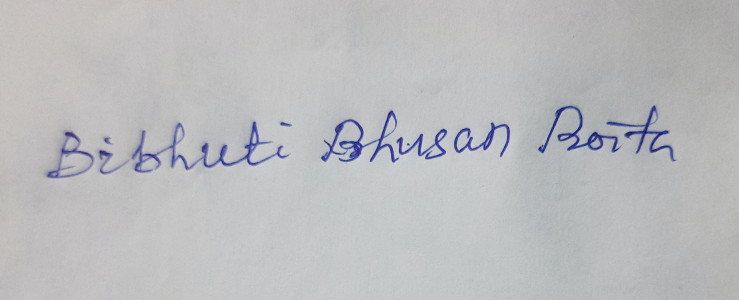 Bibhuti Bhusan Boita